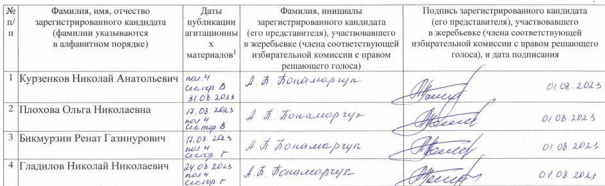 № п/п
Фамилия, имя, отчество
зарегистрированного кандидата
(фамилии указываются
в алфавитном порядке)
Даты
публикации
агитационны
х
материалов¹
Фамилия, инициалы
зарегистрированного кандидата
(его представителя), участвовавшего
в жеребьевке (члена соответствующей
избирательной комиссии с правом
решающего голоса)
Подпись зарегистрированного кандидата
(его представителя), участвовавшего
в жеребьевке (члена соответствующей
избирательной комиссии с правом решающего
голоса), и дата подписания
1 Курзенков Николай Анатольевич
пол. 4
сектор В
31.08.2023
А. Б. Понамарчук
01.08.2023
2 Плохова Ольга Николаевна
17.08.2023
пол 4
сектор В
А. Б. Понамарчук
01.08.2023
3 Бикмурзин Ренат Газинурович
17.08.2023
пол 4
сектор Г
А. Б. Понамарчук
01.08.2023
4 Гладилов Николай Николаевич
24.08.2023
пол 4
сектор Г
А. Б. Понамарчук
01.08.2023